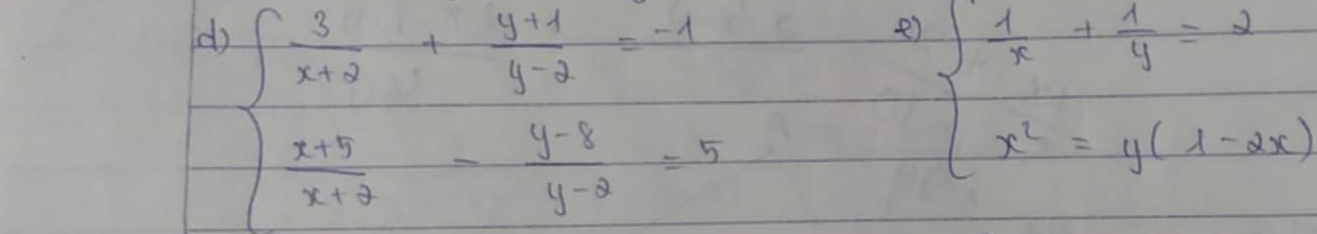 d) { 3/(x+2) + (y+1)/(y-2) = -1
(x+5)/(x+2) - (y-8)/(y-2) = 5
e) { 1/x + 1/y = 2
x² = y(1-2x)